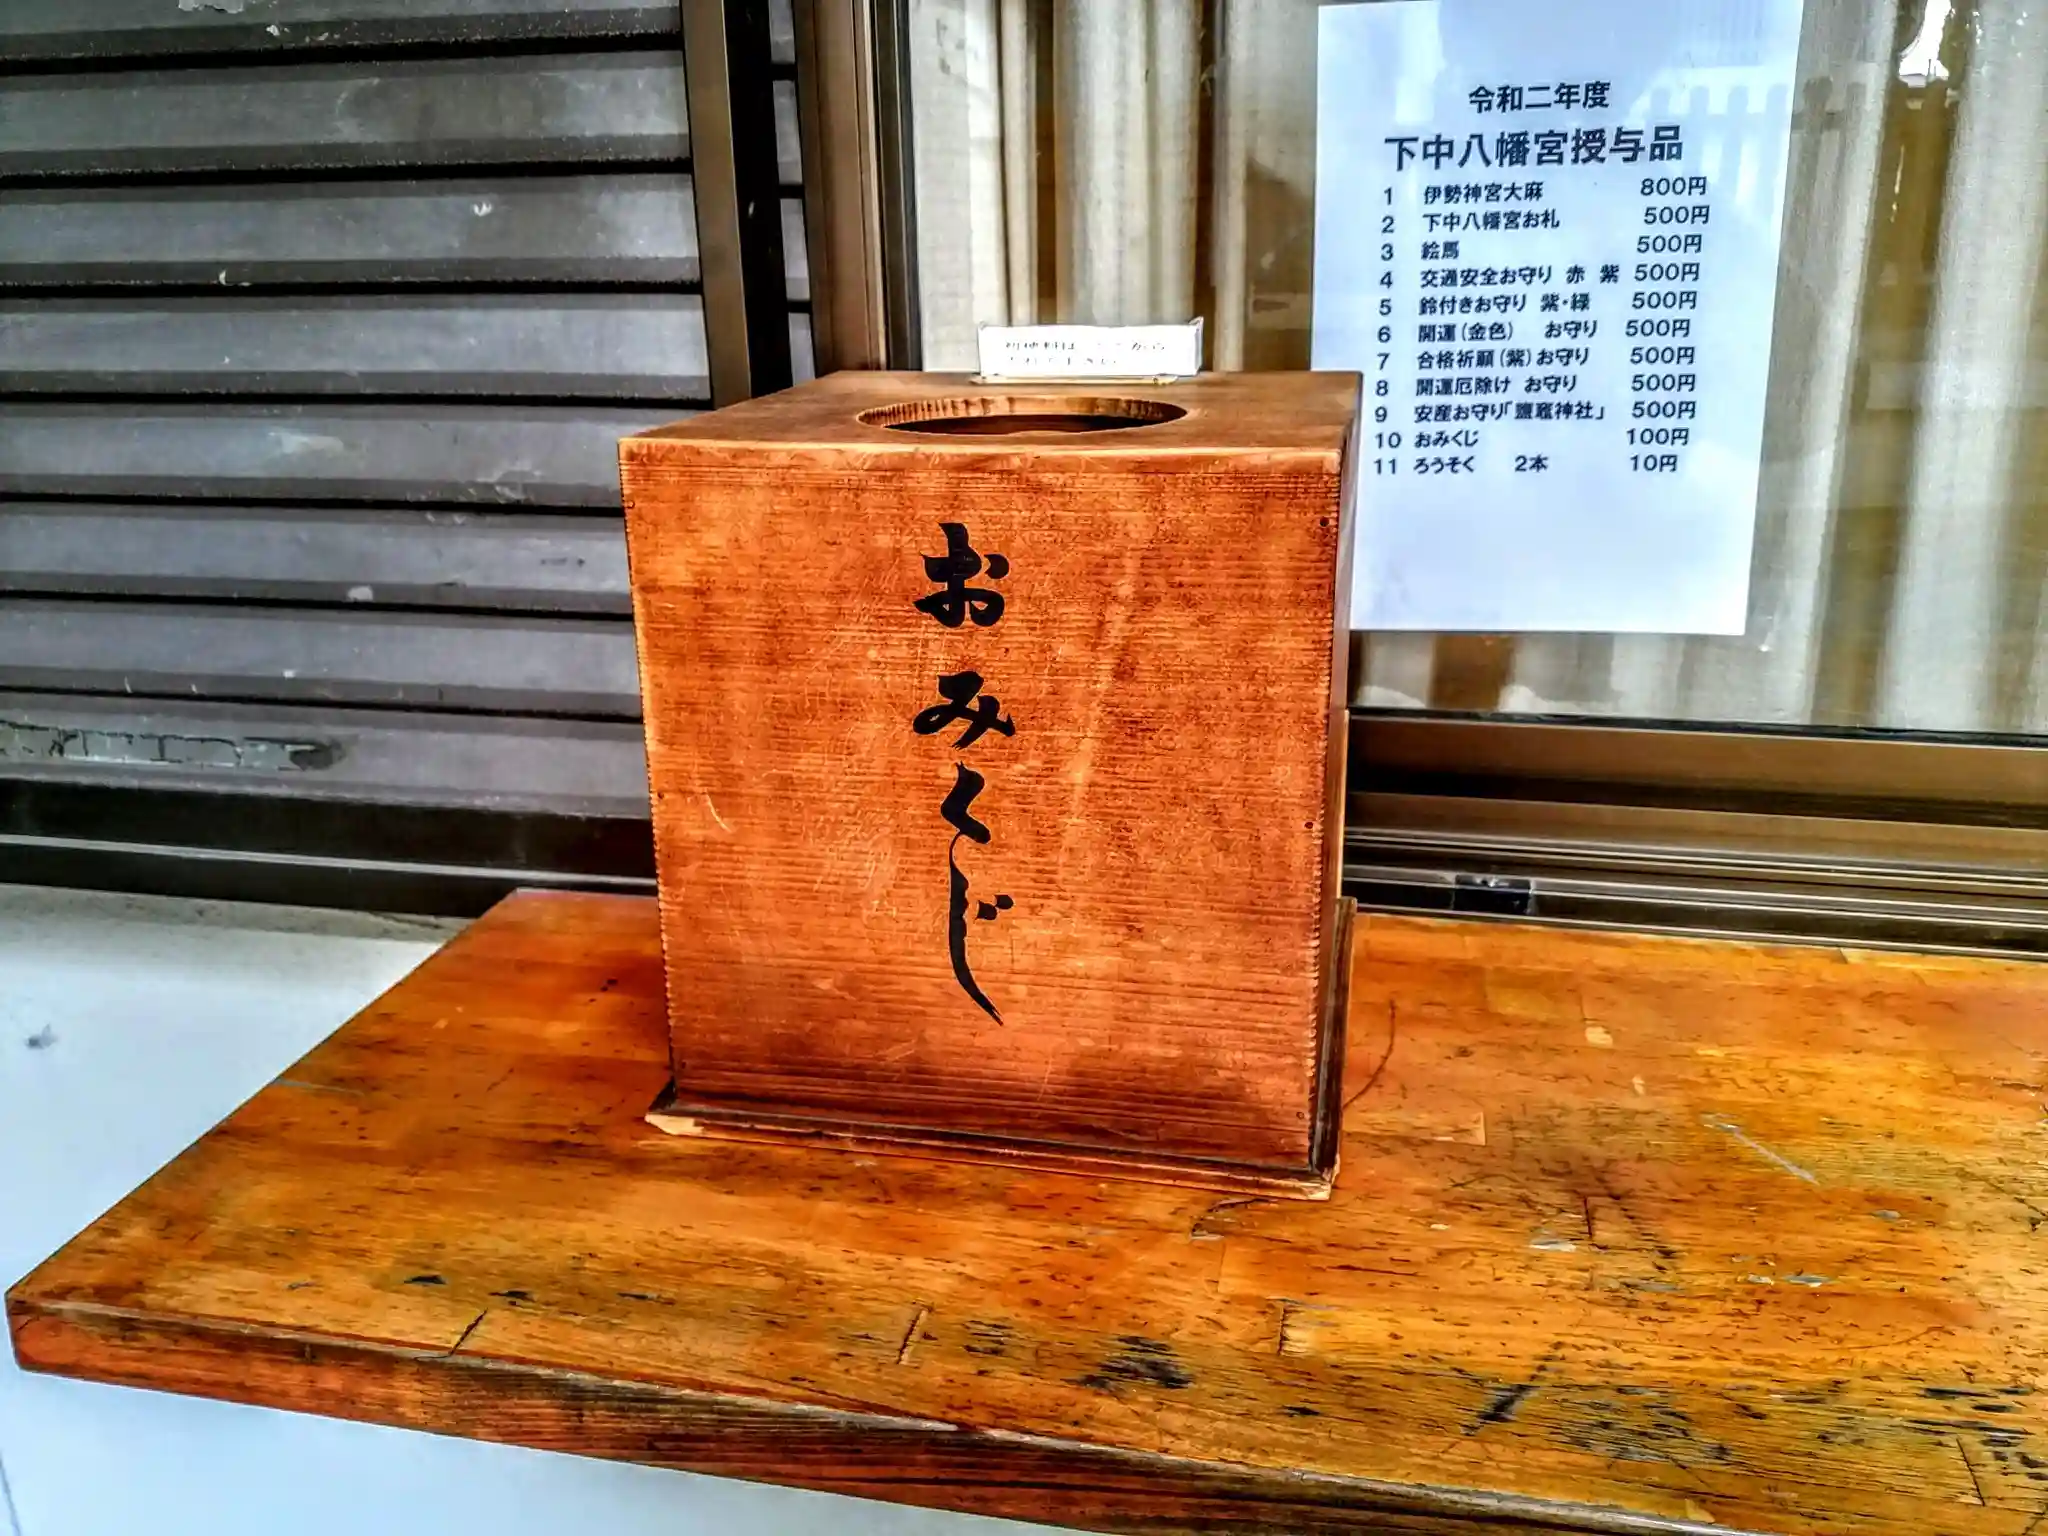 令和二年度
下中八幡宮授与品
1 伊勢神宮大麻 800円
2 下中八幡宮お札 500円
3 絵馬 500円
4 交通安全お守り 赤 紫 500円
5 鈴付きお守り 紫・緑 500円
6 開運(金色) お守り 500円
7 合格祈願(紫)お守り 500円
8 開運厄除け お守り 500円
9 安産お守り「鹽竈神社」 500円
10 おみくじ 100円
11 ろうそく 2本 10円
おみくじ